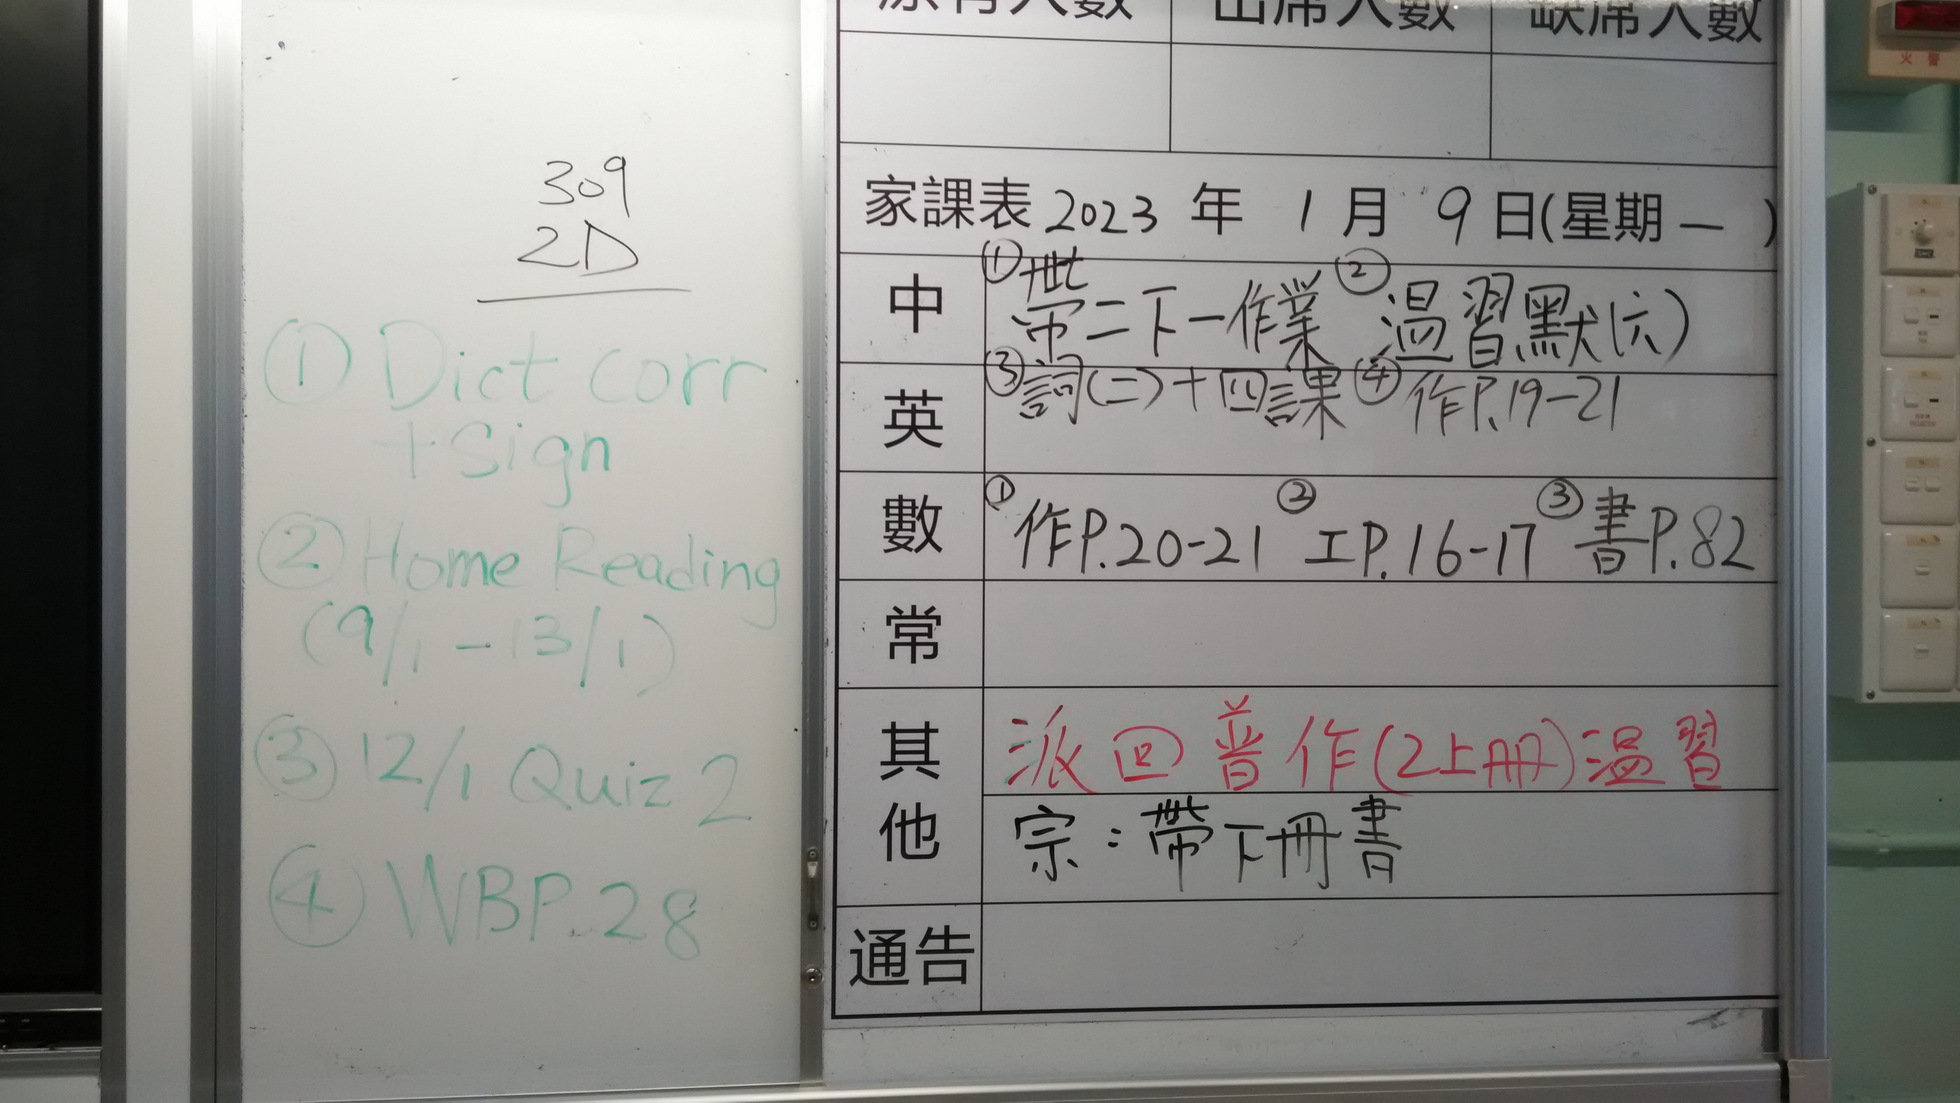 309
2D
① Dict corr
+ Sign
② Home Reading
(9/1 - 13/1)
③ 12/1 Quiz 2
④ WBP.28
原有人數 出席人數 缺席人數
家課表 2023 年 1 月 9 日(星期 一 )
中 ①帶二下一作業 ②溫習默(六)
英 ③詞(二)十四課 ④作P.19-21
數 ①作P.20-21 ②工P.16-17 ③書P.82
常
其他 派回普作(2上冊)溫習
宗:帶下冊書
通告
火警